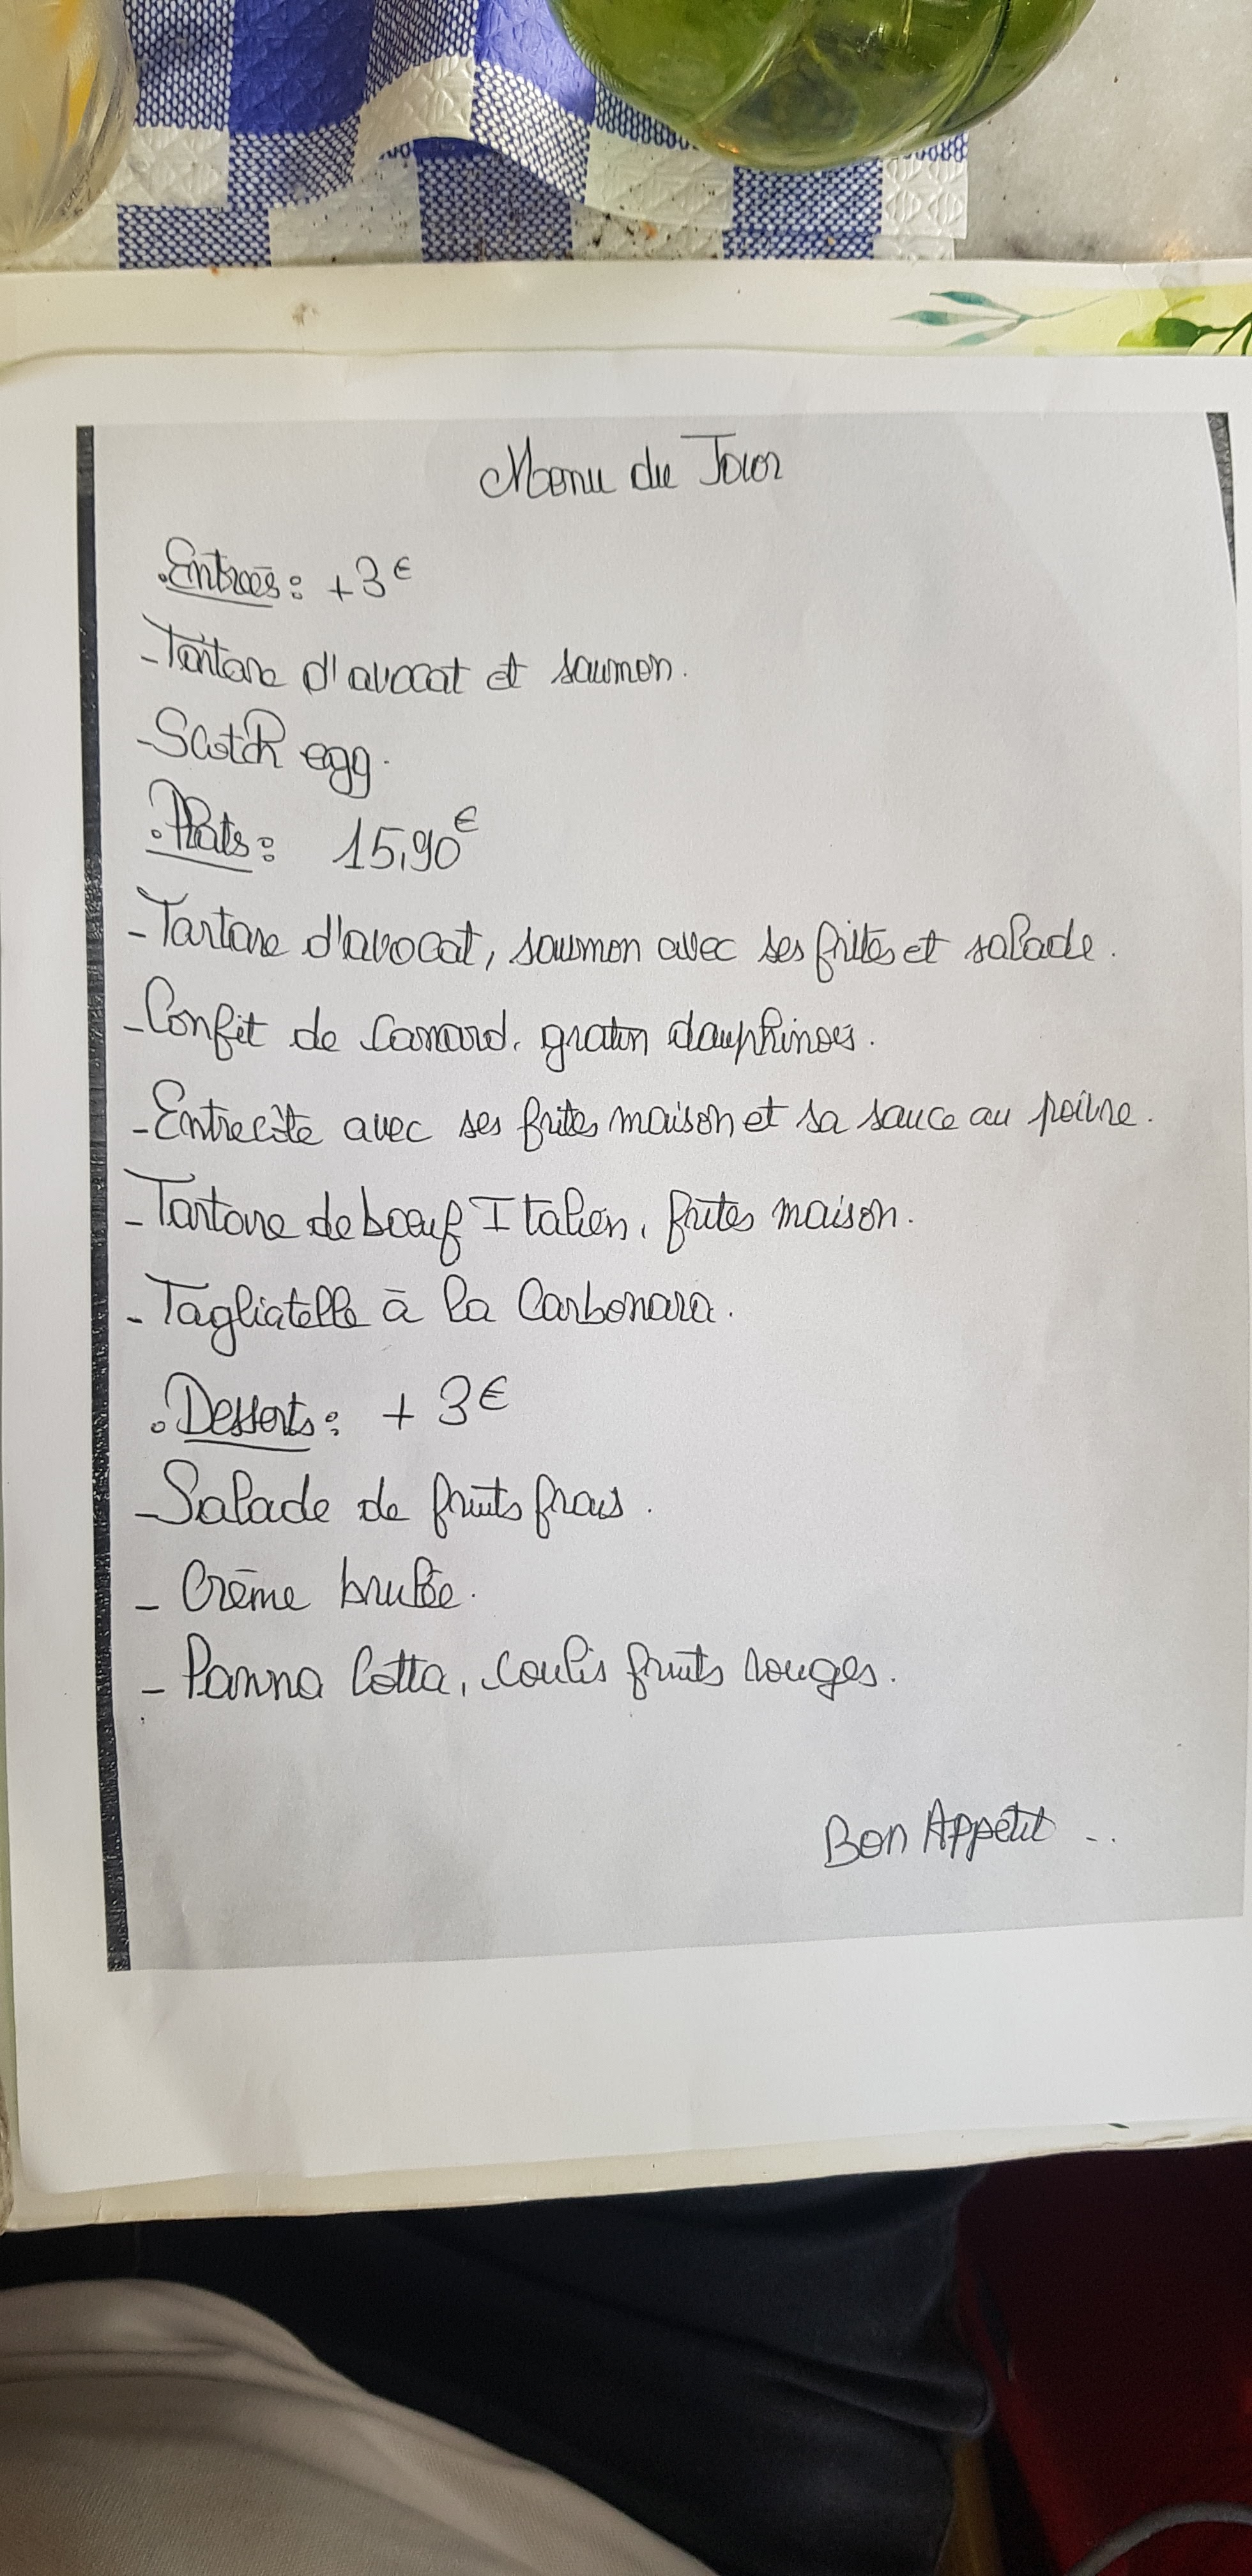 Menu du Jour
. Entrées : +3€
- Tartare d'avocat et saumon.
- Scotch egg.
. Plats : 15,90€
- Tartare d'avocat, saumon avec ses frites et salade.
- Confit de Canard, gratin dauphinois.
- Entrecôte avec ses frites maison et sa sauce au poivre.
- Tartare de boeuf Italien, frites maison.
- Tagliatelle à la Carbonara.
. Desserts : + 3€
- Salade de fruits frais.
- Crème brulée.
- Panna Cotta, coulis fruits rouges.
Bon Appétit ...